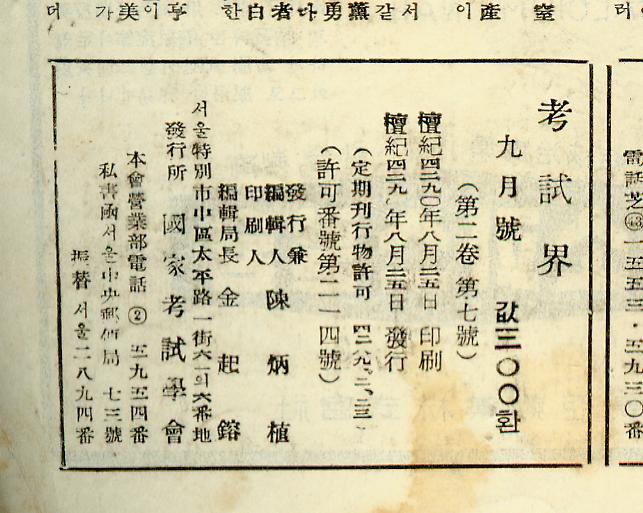 電話芝㊸一五五三·五九三〇番
考試界
九月號 값三〇〇환
(第二卷 第七號)
檀紀四二九〇年八月二五日 印刷
檀紀四二九〇年八月二五日 發行
(定期刊行物許可 四二九、二、三)
(許可番號第二一四號)
發行兼
編輯人 陳炳植
印刷人
編輯局長 金起鎔
서울特別市中區太平路一街六一의六番地
發行所 國家考試學會
本會營業部電話 ② 五九五四番
私書國서울中央郵便局 七三號
振替 서울二八九四番